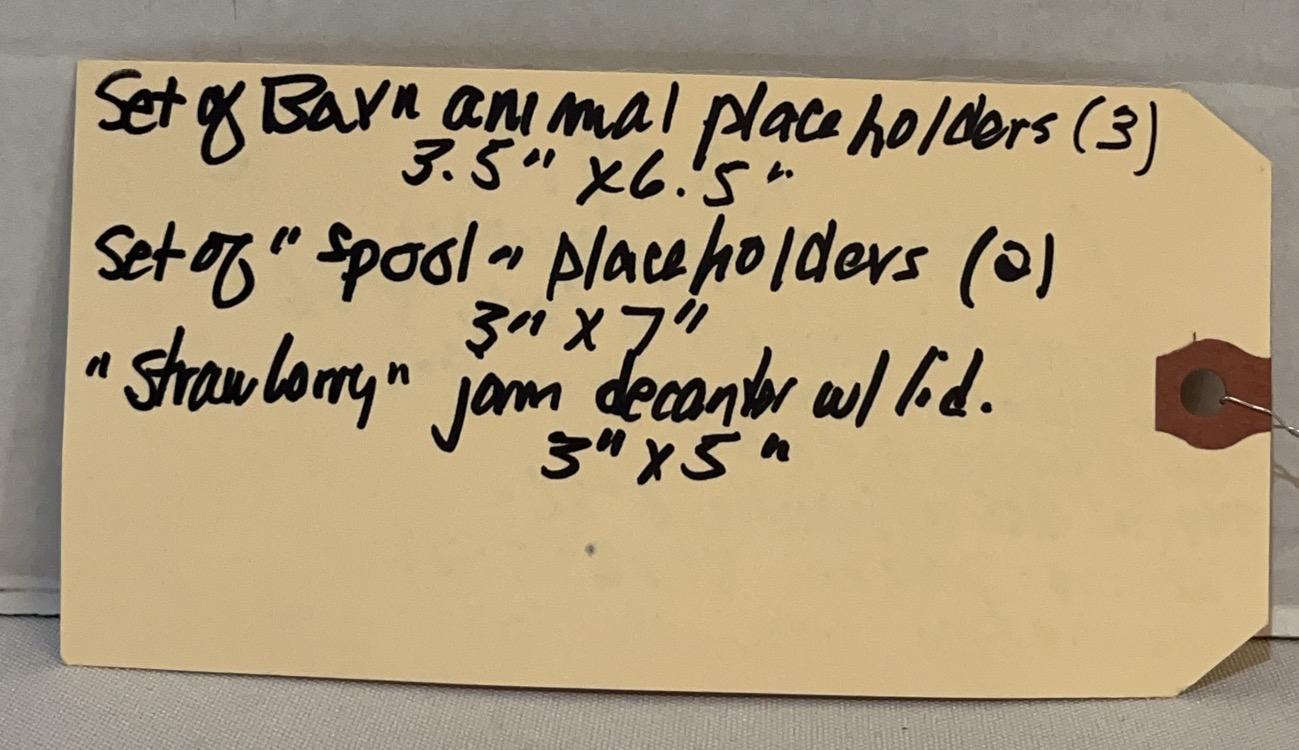 Set of Barn animal placeholders (3)
3.5" x 6.5"
Set of "Spool" placeholders (2)
3" x 7"
"Strawberry" jam decanter w/ lid.
3" x 5"